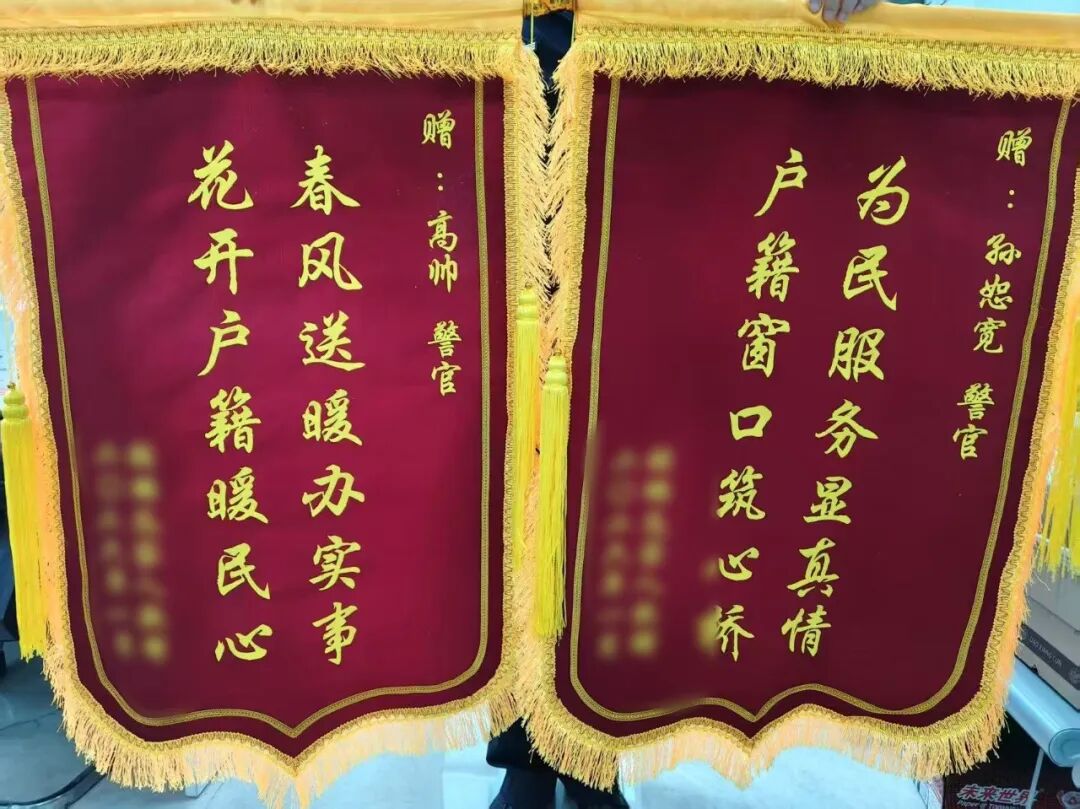 赠：高帅 警官
春风送暖办实事
花开户籍暖民心
赠：孙恕宽 警官
为民服务显真情
户籍窗口筑心桥
未来世界